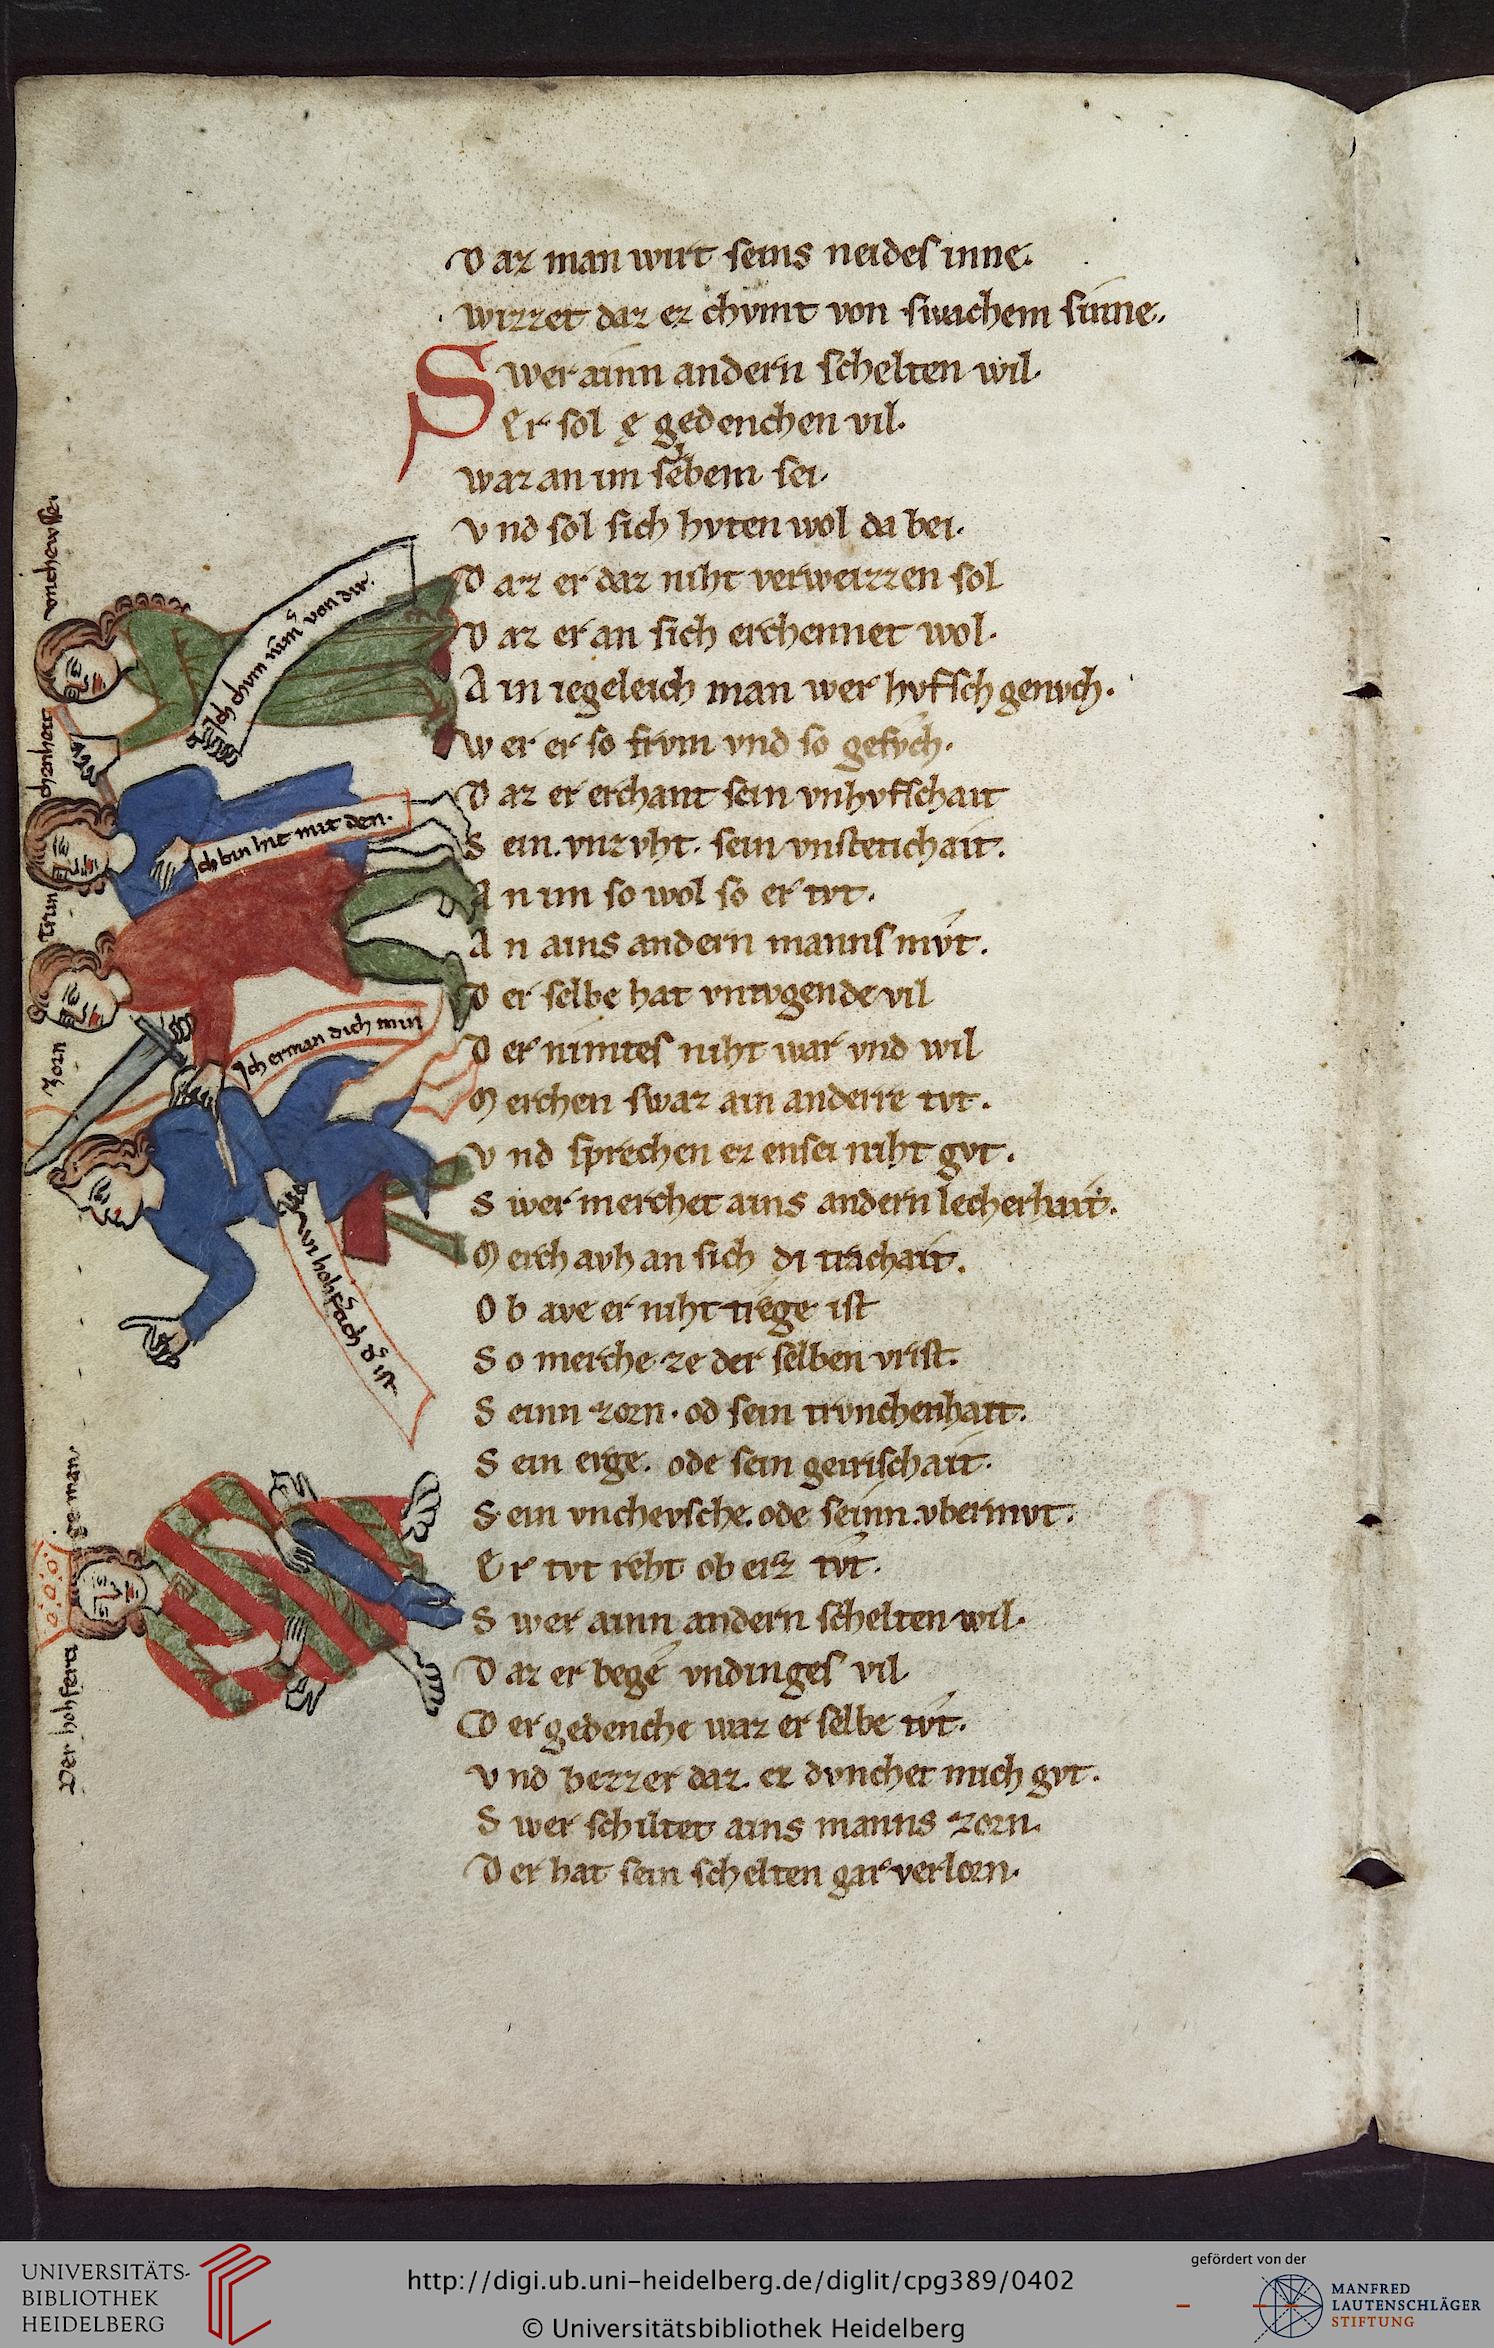 Daz man wirt seins neides inne.
wizzet daz ez chvmt von swachem sinne.
Swer ainn andern schelten wil.
Er sol ę gedenchen vil.
waz an im selbem sei.
vnd sol sich hvten wol da bei.
Daz er daz niht verweizzen sol
Daz er an sich erchennet wol.
Ain iegeleich man wer hvfsch genvch.
wer er so frvm vnd so gefvch.
Daz er erchant sein vnhvfschait
Sein. vnzvht. sein vnstetichait.
An im so wol so er tvt.
An ains andern manns mvt.
Der selbe hat vntvgende vil
Der nimtes niht war vnd wil
Merchen swaz ain anderre tvt.
Vnd sprechen ez ensei niht gvt.
Swer merchet ains andern lecherhait.
Merch avh an sich di trachait.
Ob ave er niht trege ist
So merche ze der selben vrist.
Seinn zorn. od sein trvnchenhait.
Sein erge. ode sein geirischait.
Sein vnchevsche. ode seinn. vbermvt.
Er tvt reht ob erz tvt.
Swer ainn andern schelten wil.
Daz er bege vndinges vil
Der gedenche waz er selbe tvt.
Vnd bezzer daz. ez dvnchet mich gvt.
Swer schiltet ains manns zorn.
Der hat sein schelten gar verlorn.
vnchewsse.
Ich chvm nim von dir.
trun chenheit
Ich bin hie mit den.
zorn
Ich erman dich min
wi hohfach d ist
Der hohferti ge man.
UNIVERSITÄTS-
BIBLIOTHEK
HEIDELBERG
http://digi.ub.uni-heidelberg.de/diglit/cpg389/0402
© Universitätsbibliothek Heidelberg
gefördert von der
MANFRED
LAUTENSCHLÄGER
STIFTUNG